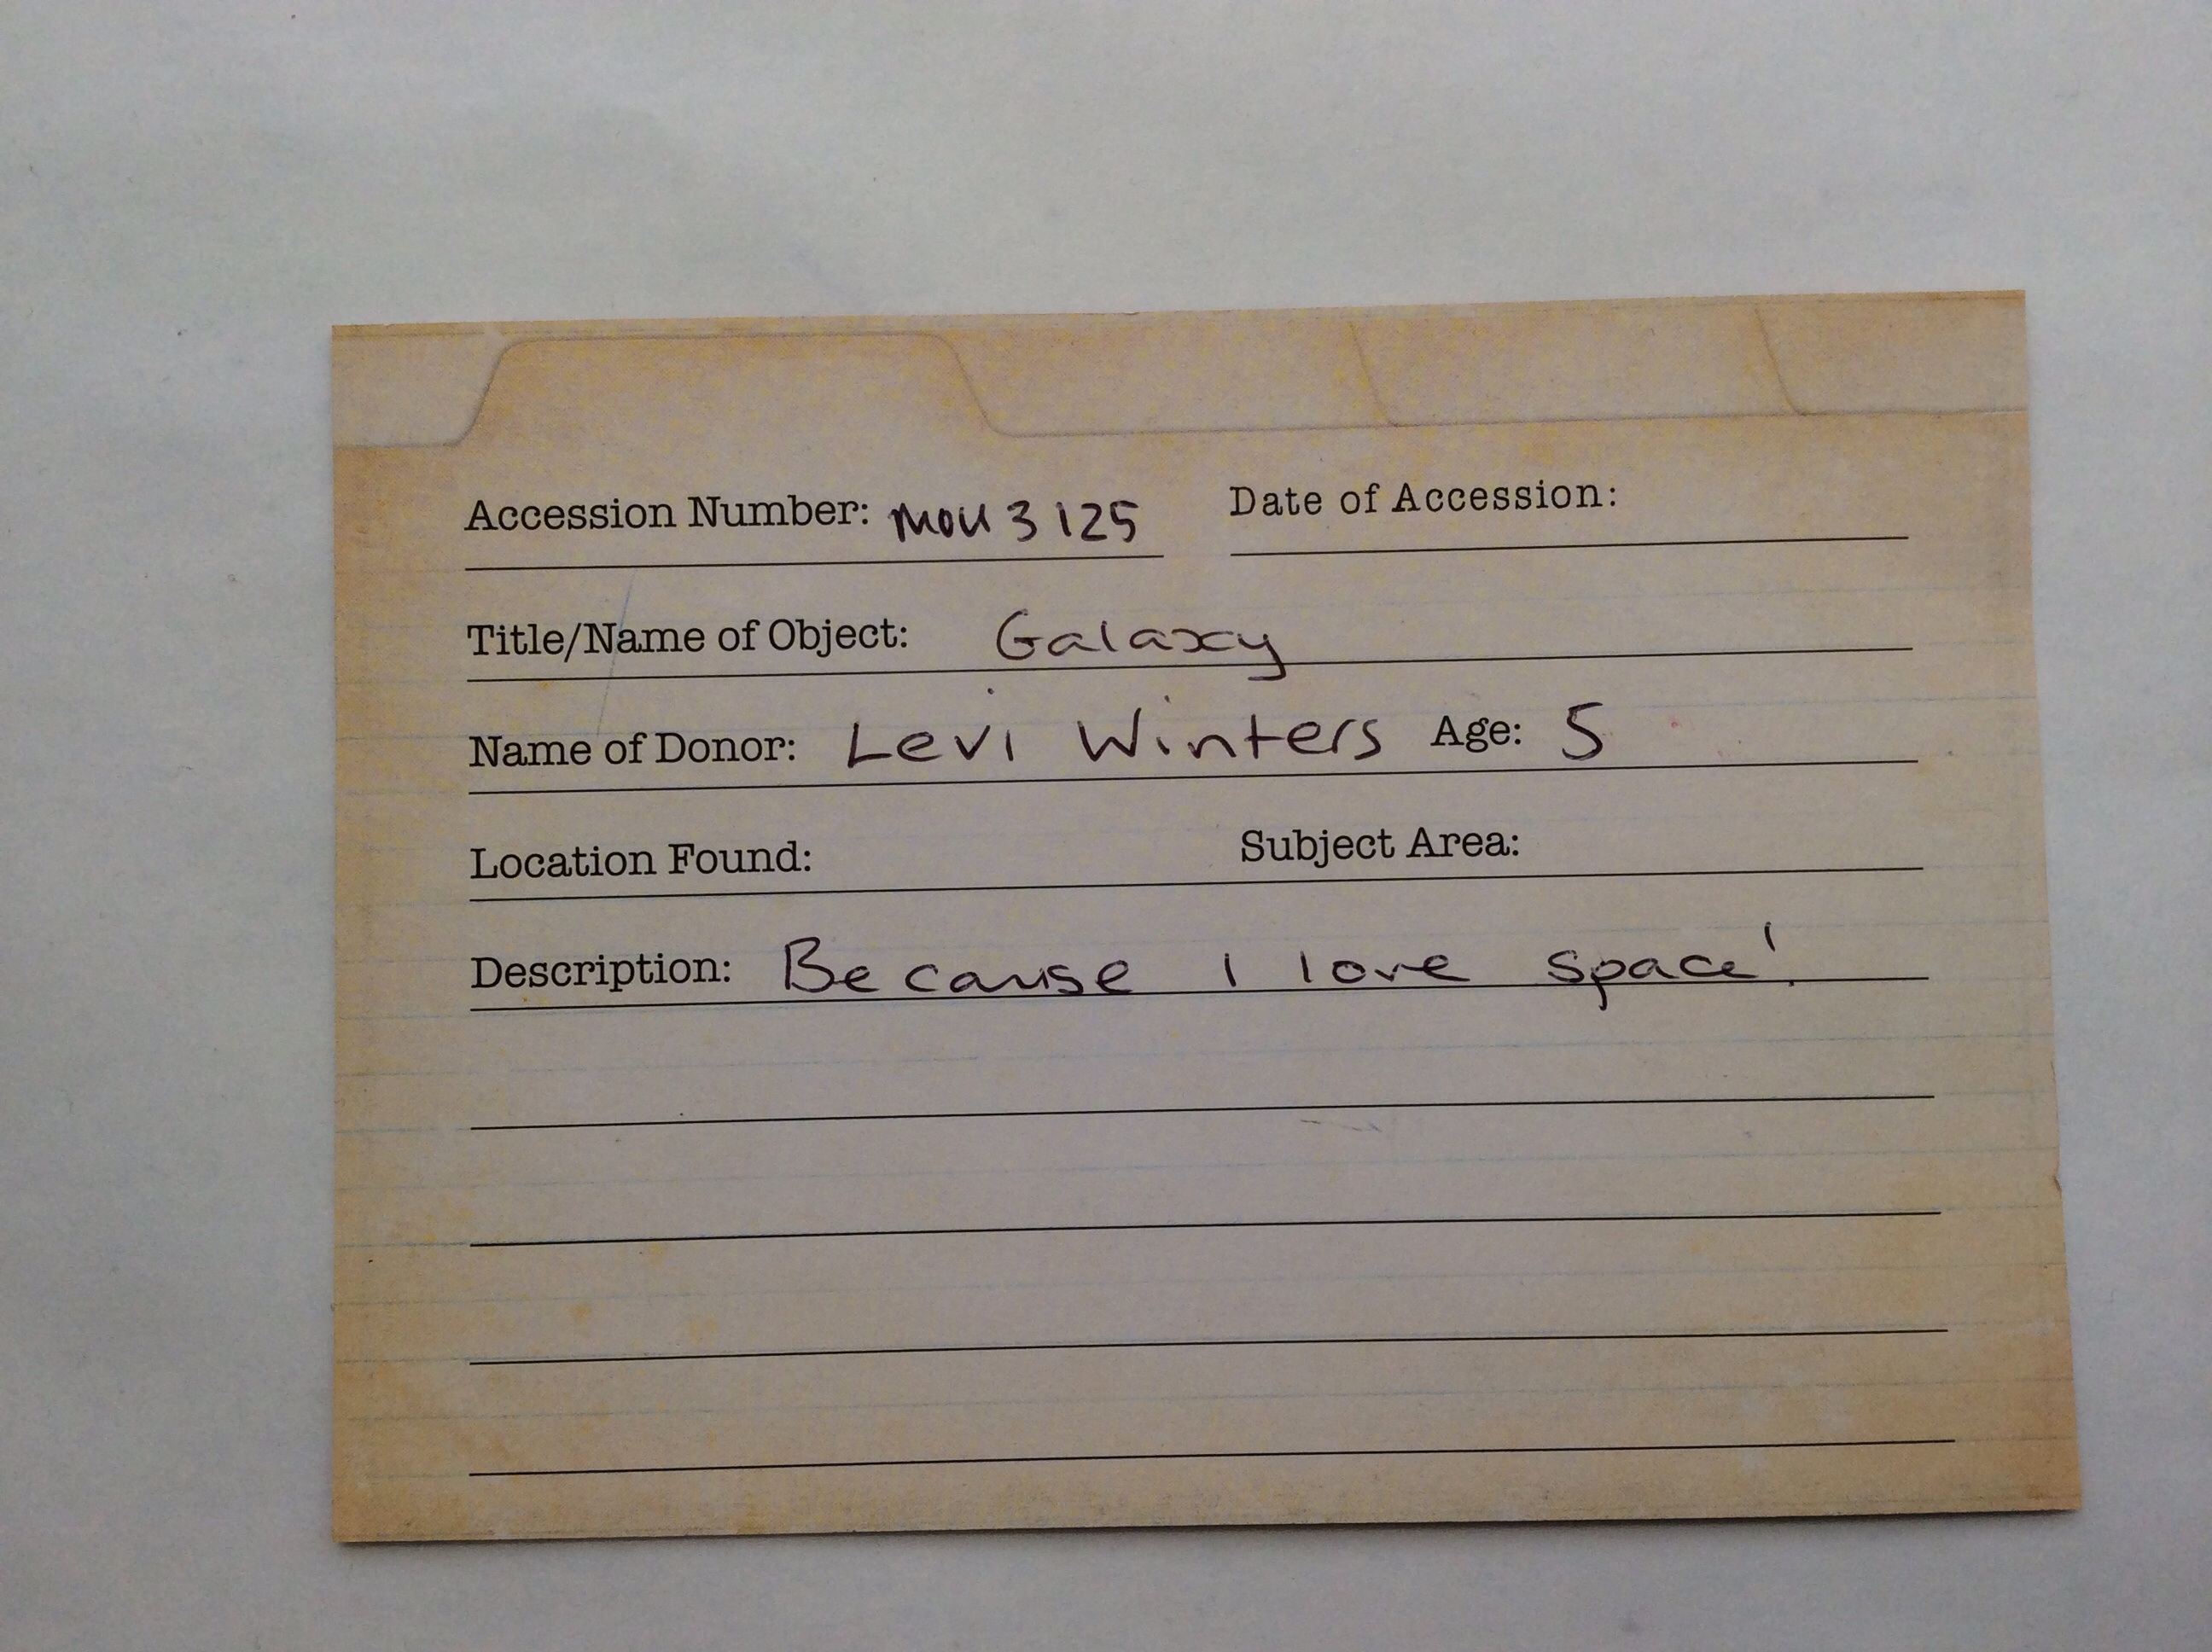 Accession Number: MOU 3125 Date of Accession:
Title/Name of Object: Galaxy
Name of Donor: Levi Winters Age: 5
Location Found: Subject Area:
Description: Because I love space!